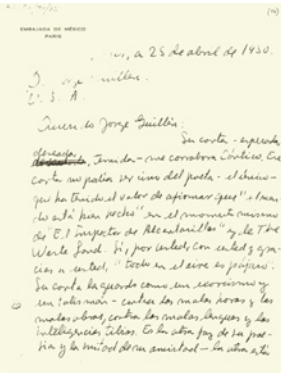 EMBAJADA DE MÉXICO
PARIS
a 25 de abril de 1950.
Jorge Guillén.
U. S. A.
Querido Jorge Guillén:
Su carta - esperada,
deseada, temida - me corrobora Cántico. Esa
carta no podía ser sino del poeta - el único -
que ha tenido el valor de afirmar que "el mun-
do está bien hecho" en el momento mismo
de "El Inspector de Alcantarillas" y de The
Waste Land. Sí, por usted, con usted y gra-
cias a usted, "todo en el aire es pájaro".
Su carta la guardo como un exorcismo y
un talismán - contra las malas horas y las
malas obras, contra las malas lenguas y las
inteligencias tibias. Es la otra faz de su poe-
sía y la mitad de su amistad - la otra está